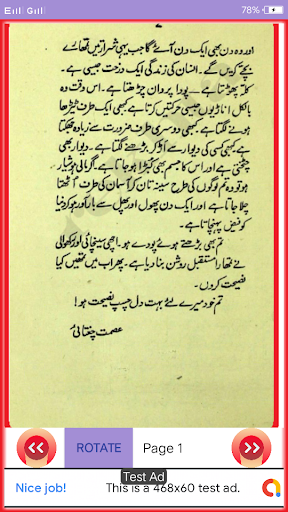 78%
اور وہ دن بھی ایک دن آئے گا جب یہی شرارتیں تمھارے
بچے کریں گے۔ انسان کی زندگی ایک درخت جیسی ہے۔
کلّہ پھوٹتا ہے۔ پودا پروان چڑھتا ہے۔ اس وقت وہ
بالکل اناڑیوں جیسی حرکتیں کرتا ہے کبھی ایک طرف ٹیڑھا
ہونے لگتا ہے۔ کبھی دوسری طرف ضرورت سے زیادہ جھکتا
ہے کبھی کسی کی دیوار سے اڑ کر بڑھنے لگتا ہے۔ دیوار بھی
چٹختی ہے اور اس کا جسم بھی کبڑا ہو جاتا ہے۔ گر مالی ہوشیار
ہو تو وہ تم لوگوں کی طرح سینہ تان کر آسمان کی طرف اٹھتا
چلا جاتا ہے اور ایک دن پھول اور پھل سے بار آور ہو کر دنیا
کو فیض پہنچاتا ہے۔
تم بھی بڑھتے ہوئے پودے ہو۔ اچھی سینچائی اور رکھوالی
نے تمھارا مستقبل روشن بنا دیا ہے۔ پھر اب میں تمھیں کیا
نصیحت کروں۔
تم خود میرے لئے بہت دل چسپ نصیحت ہو!
عصمت چغتائی
ROTATE Page 1
Test Ad
Nice job! This is a 468x60 test ad.